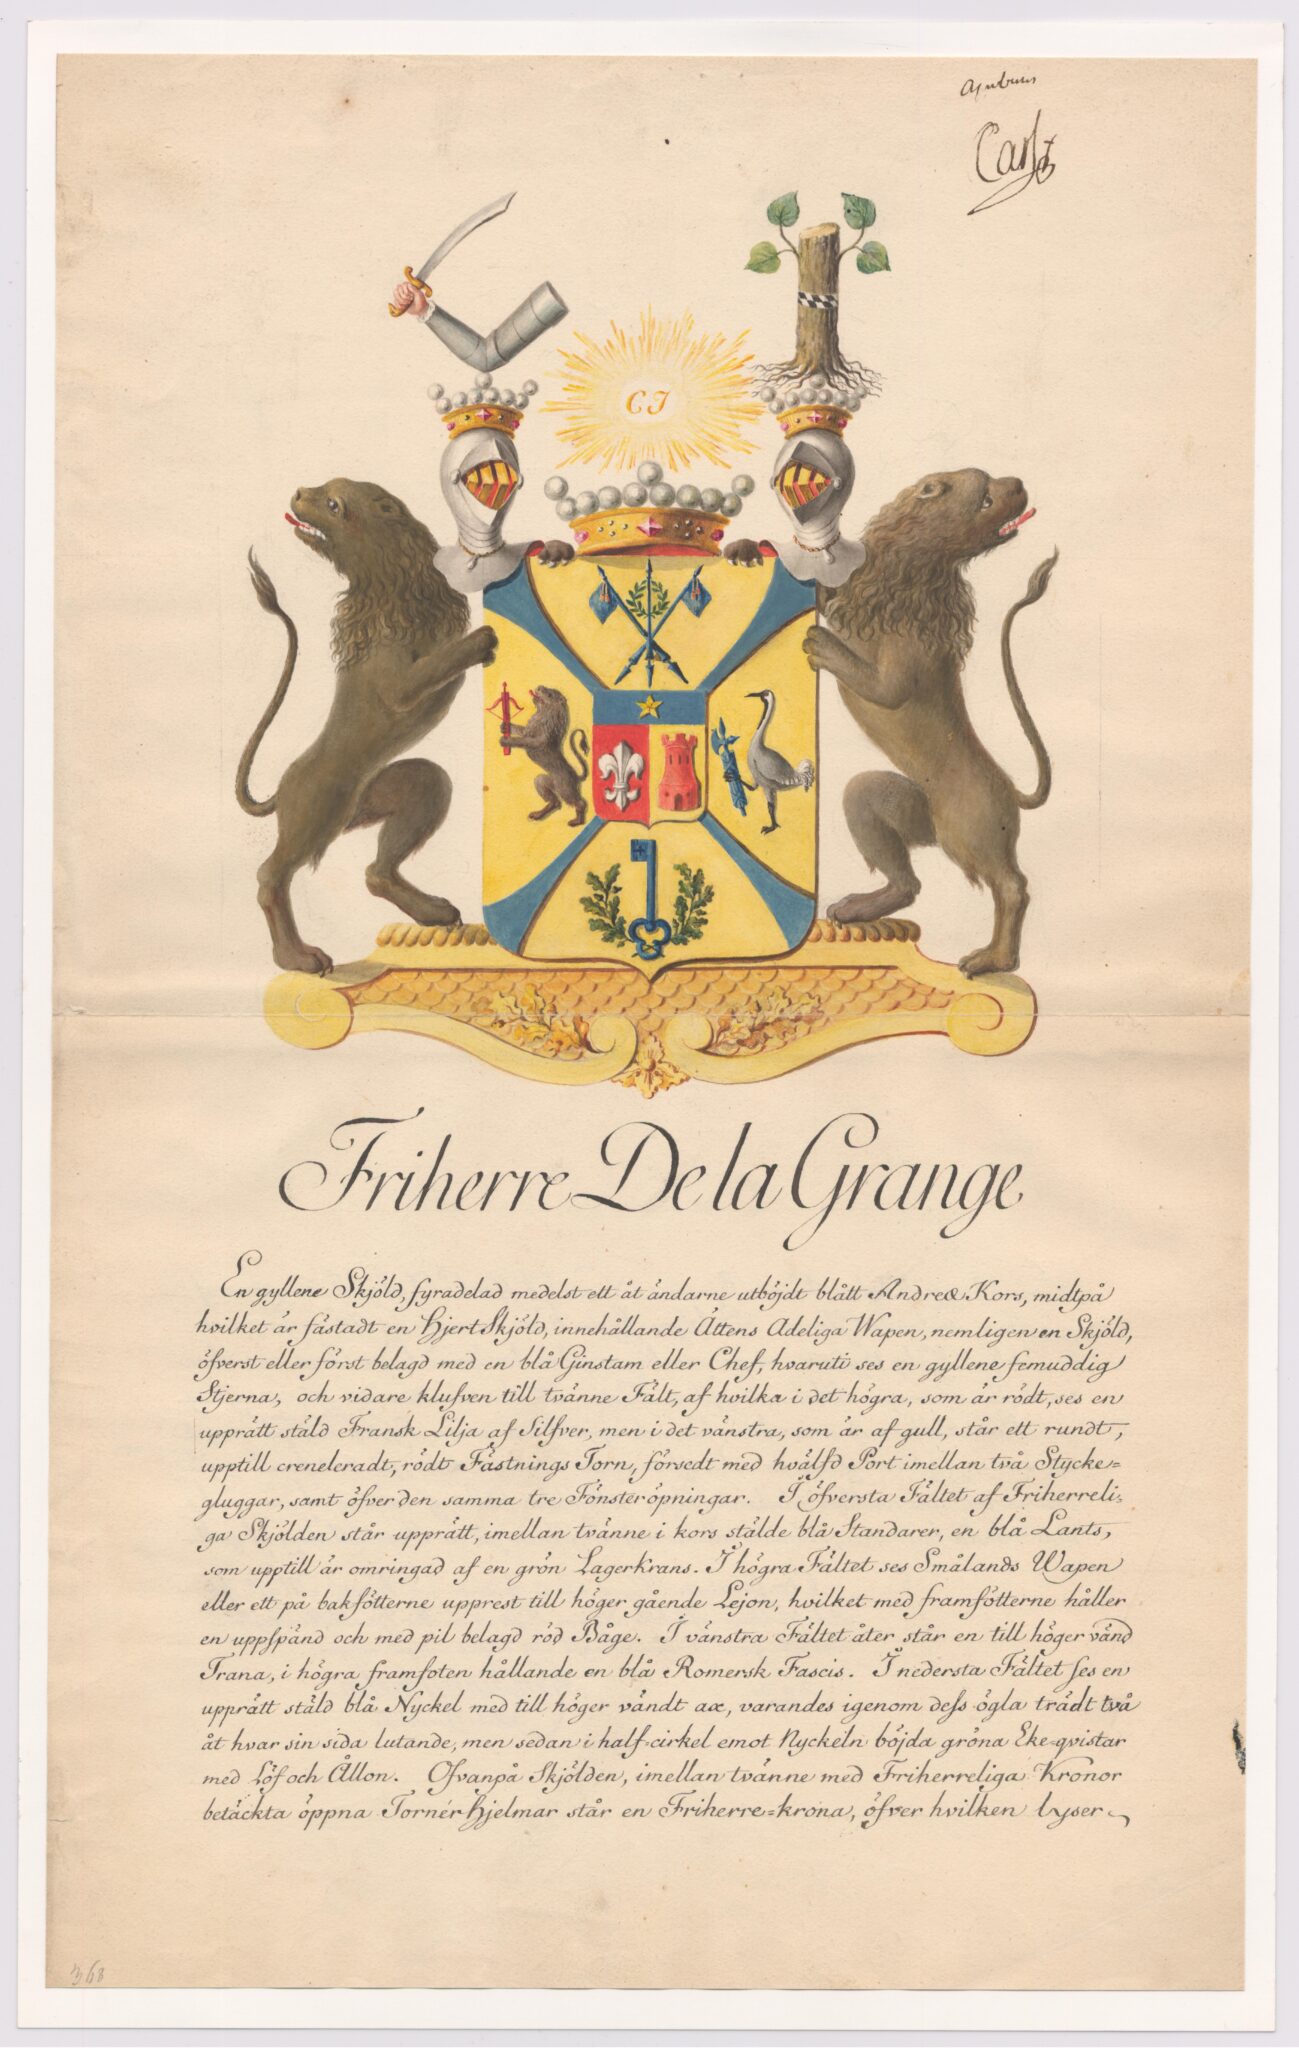 Carl
C J
Friherre De la Grange
En gyllene Skjöld, fyradelad medelst ett åt ändarne utböjdt blått Andreæ Kors, midtpå
hvilket är fästadt en Hjert Skjöld, innehållande Ättens Adeliga Wapen, nemligen en Skjöld,
öfverst eller först belagd med en blå Ginstam eller Chef, hvaruti ses en gyllene femuddig
Stjerna, och vidare klufven till tvänne Fält, af hvilka i det högra, som är rödt, ses en
upprätt stäld Fransk Lilja af Silfver, men i det vänstra, som är af gull, står ett rundt,
upptill creneleradt, rödt Fästnings Torn, försedt med hvälfd Port imellan två Stycke=
gluggar, samt öfver den samma tre Fönsteröpningar. I öfversta Fältet af Friherreli=
ga Skjölden står upprätt, imellan tvänne i kors stälde blå Standarer, en blå Lants,
som upptill är omringad af en grön Lagerkrans. I högra Fältet ses Smålands Wapen
eller ett på bakfötterne upprest till höger gående Lejon, hvilket med framfötterne håller
en uppspänd och med pil belagd röd Båge. I vänstra Fältet åter står en till höger vänd
Trana, i högra framfoten hållande en blå Romersk Fascis. I nedersta Fältet ses en
upprätt stäld blå Nyckel med till höger vändt ax, varandes igenom dess ögla trädt två
åt hvar sin sida lutande, men sedan i half-cirkel emot Nyckeln böjda gröna Eke-qvistar
med Löf och Ållon. Ofvanpå Skjölden, imellan tvänne med Friherreliga Kronor
betäckta öppna Tornér Hjelmar står en Friherre=krona, öfver hvilken lyser
368